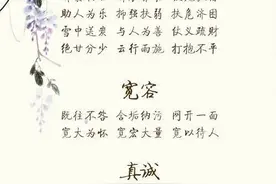 助人为乐 抑强扶弱 扶危济困
雪中送炭 与人为善 仗义疏财
绝甘分少 云行雨施 打抱不平
宽容
既往不咎 含垢纳污 网开一面
宽大为怀 宽宏大量 宽以待人
真诚